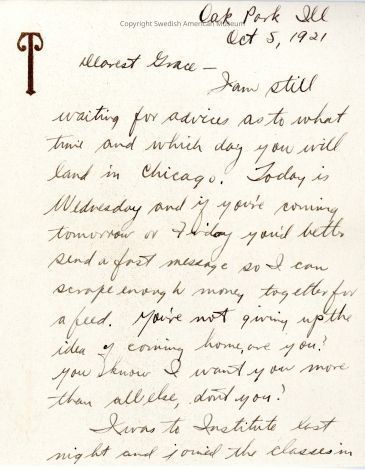 Copyright Swedish American Museum
Oak Park Ill
Oct 5, 1921
T
Dearest Grace —
I am still
waiting for advices as to what
time and which day you will
land in Chicago. Today is
Wednesday and if you're coming
tomorrow or Friday you'd better
send a fast message so I can
scrape enough money together for
a feed. You're not giving up the
idea of coming home, are you?
You know I want you more
than all else, don't you?
I was to Institute last
night and joined the classes in